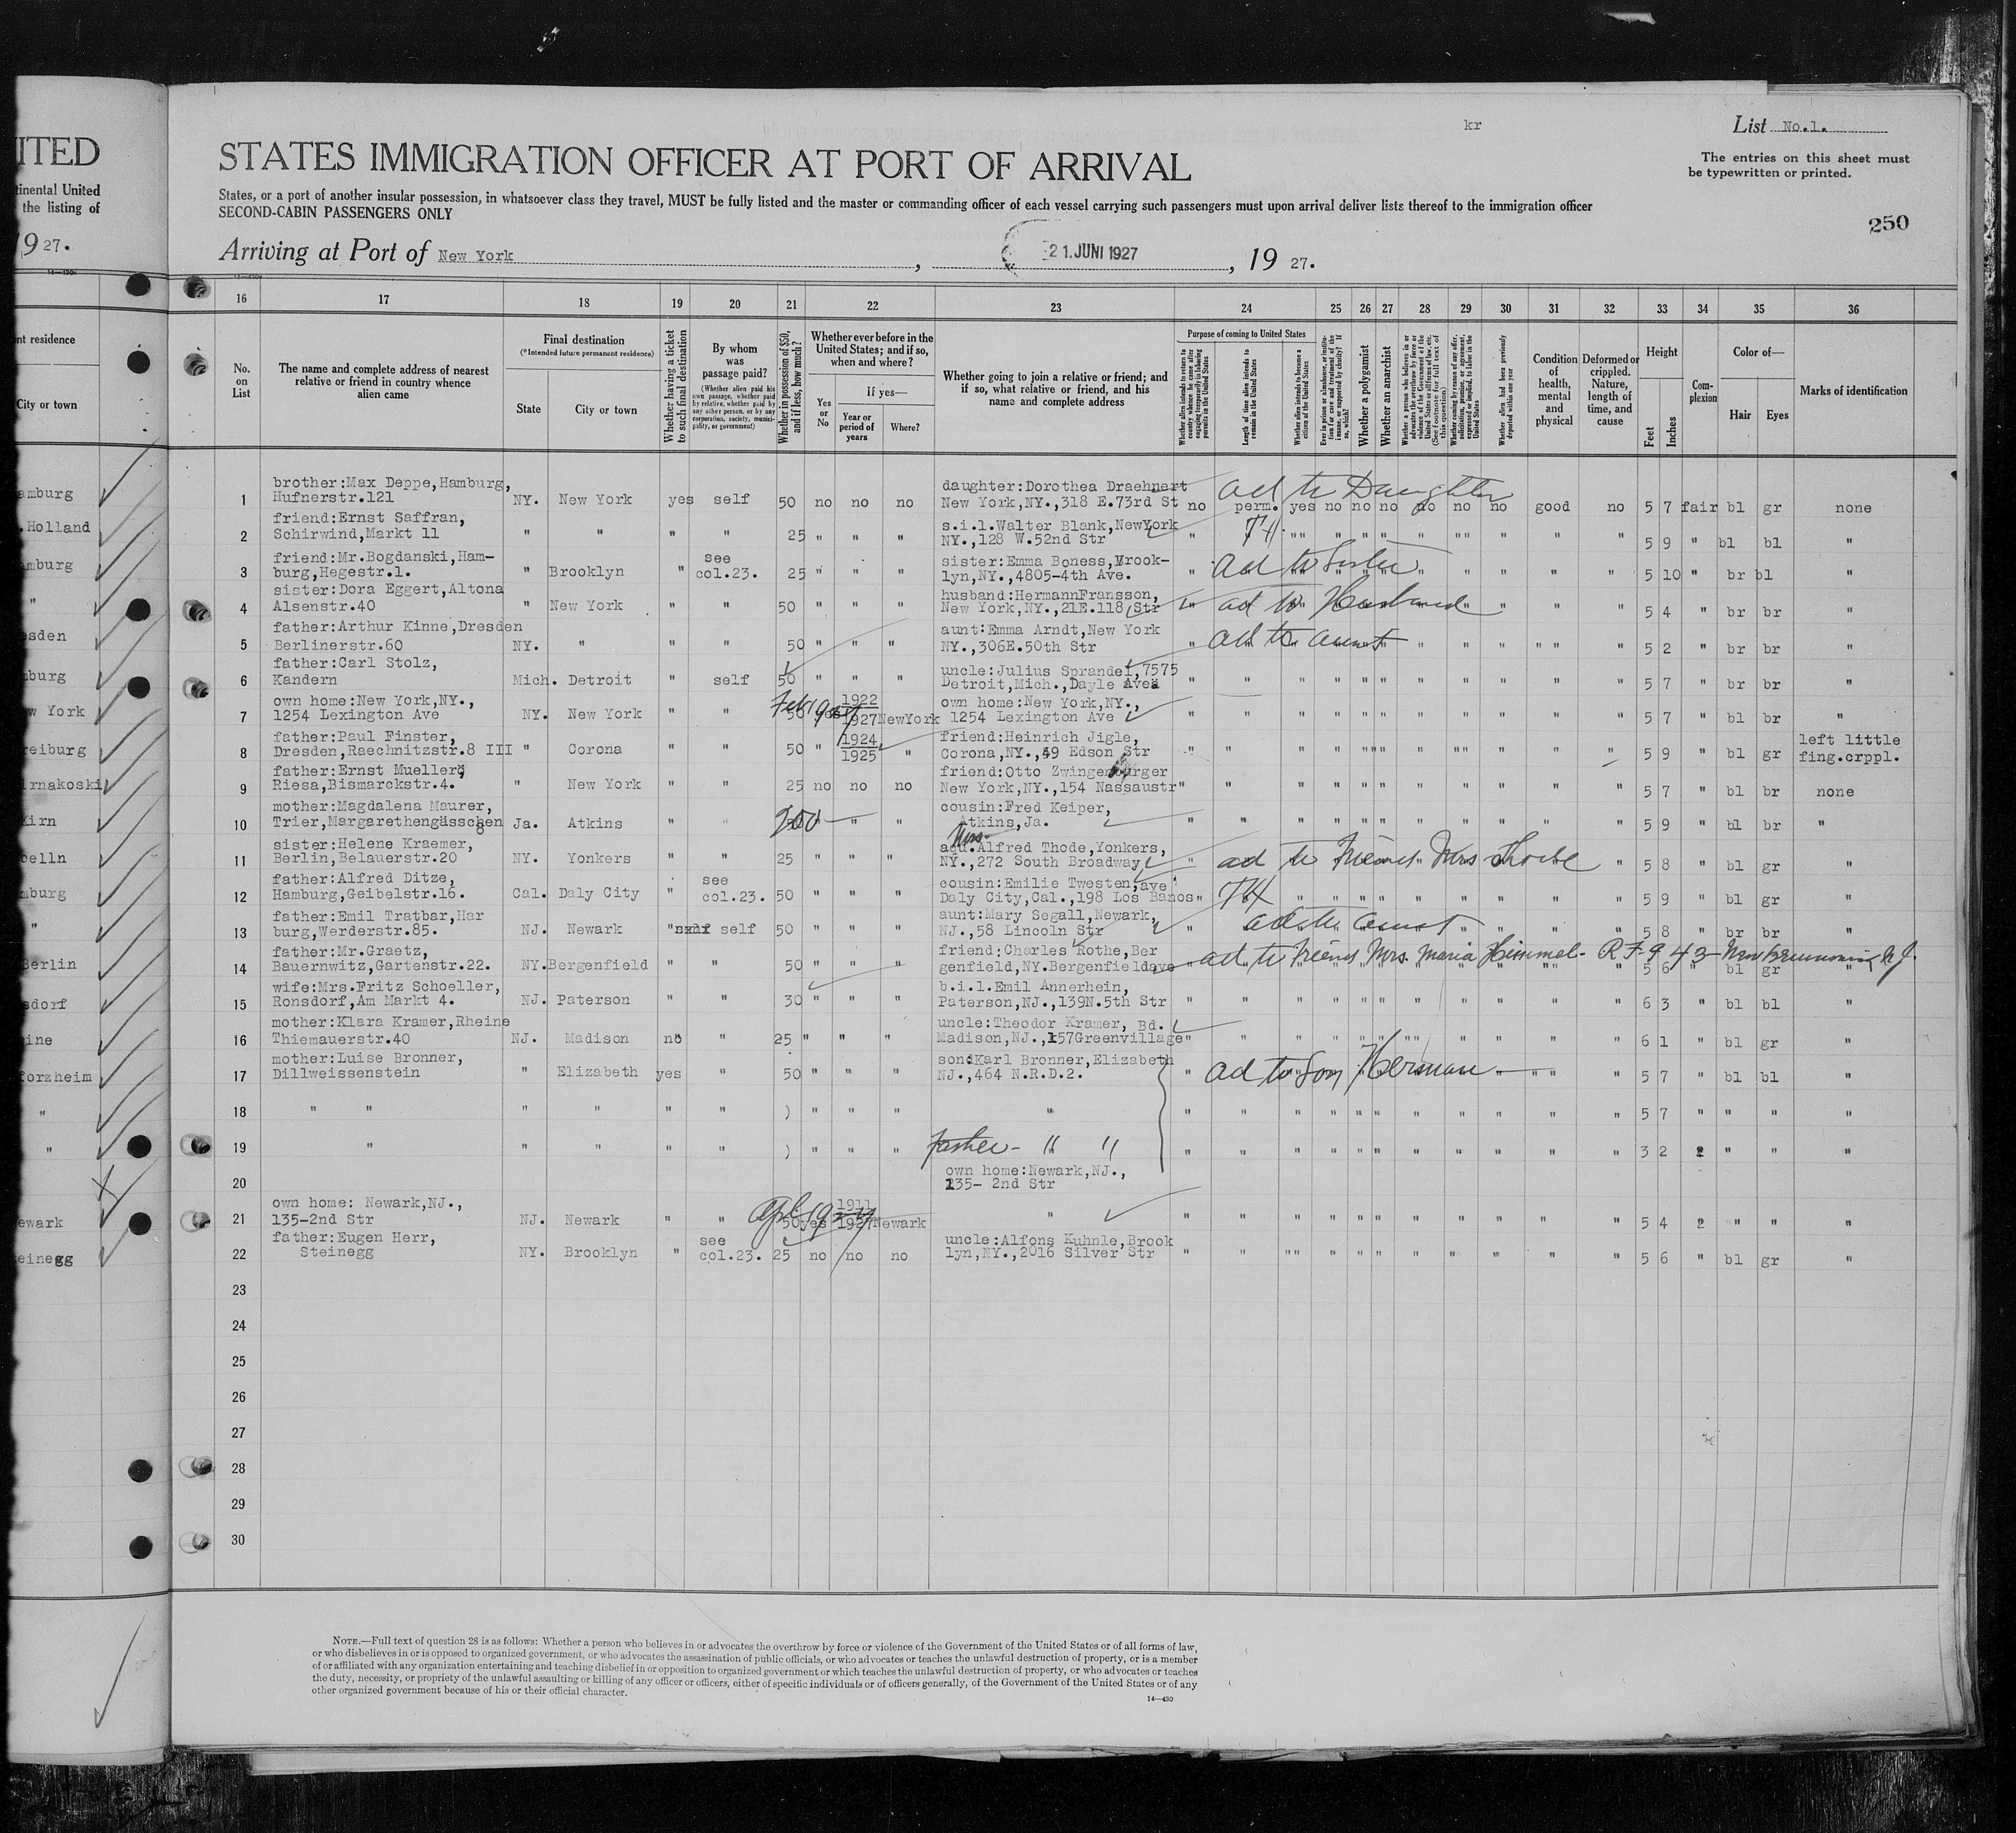 ITED
tinental United
the listing of
19 27.
nt residence
City or town
amburg
.Holland
amburg
"
esden
mburg
w York
reiburg
irnakoski
Kirn
oelln
mburg
"
Berlin
sdorf
eine
forzheim
"
"
ewark
einegg
kr
List No.1.
STATES IMMIGRATION OFFICER AT PORT OF ARRIVAL
The entries on this sheet must
be typewritten or printed.
States, or a port of another insular possession, in whatsoever class they travel, MUST be fully listed and the master or commanding officer of each vessel carrying such passengers must upon arrival deliver lists thereof to the immigration officer
SECOND-CABIN PASSENGERS ONLY
250
Arriving at Port of New York, 21. JUNI 1927, 19 27.
16 17 18 19 20 21 22 23 24 25 26 27 28 29 30 31 32 33 34 35 36
No. on List
The name and complete address of nearest relative or friend in country whence alien came
Final destination
(*Intended future permanent residence)
State
City or town
Whether having a ticket to such final destination
By whom was passage paid?
(Whether alien paid his own passage, whether paid by relative, whether paid by any other person, or by any corporation, society, municipality, or government)
Whether in possession of $50, and if less, how much?
Whether ever before in the United States; and if so, when and where?
Yes or No
If yes—
Year or period of years
Where?
Whether going to join a relative or friend; and if so, what relative or friend, and his name and complete address
Purpose of coming to United States
Whether alien intends to return to country whence he came after engaging temporarily in laboring pursuits in the United States
Length of time alien intends to remain in the United States
Whether alien intends to become a citizen of the United States
Ever in prison or almshouse, or institution for care and treatment of the insane, or supported by charity? If so, which?
Whether a polygamist
Whether an anarchist
Whether a person who believes in or advocates the overthrow by force or violence of the Government of the United States or all forms of law, etc. (See footnote for full text of this question)
Whether coming by reason of any offer, solicitation, promise, or agreement, expressed or implied, to labor in the United States
Whether alien had been previously deported within one year
Condition of health, mental and physical
Deformed or crippled. Nature, length of time, and cause
Height
Feet
Inches
Complexion
Color of—
Hair
Eyes
Marks of identification
brother:Max Deppe,Hamburg, daughter:Dorothea Draehnert ad to Daughter
1 Hufnerstr.121 NY. New York yes self 50 no no no New York,NY.,318 E.73rd St no perm. yes no no no no no no good no 5 7 fair bl gr none
friend:Ernst Saffran, s.i.l.Walter Blank,NewYork
2 Schirwind,Markt 11 " " " " 25 " " " NY.,128 W.52nd Str " " " " " " " " " " 5 9 " bl bl "
friend:Mr.Bogdanski,Ham- see sister:Emma Boness,Brook- ad to Sister
3 burg,Hegestr.1. " Brooklyn " col.23. 25 " " " lyn,NY.,4805-4th Ave. " " " " " " " " " " 5 10 " br bl "
sister:Dora Eggert,Altona husband:HermannFransson, ad to Husband
4 Alsenstr.40 " New York " " 50 " " " New York,NY.,21E.118 Str " " " " " " " " " " 5 4 " br br "
father:Arthur Kinne,Dresden aunt:Emma Arndt,New York ad to aunt
5 Berlinerstr.60 NY. " " " 50 " " " NY.,306E.50th Str " " " " " " " " " " 5 2 " br br "
father:Carl Stolz, uncle:Julius Sprandel,7575
6 Kandern Mich. Detroit " self 50 " " " Detroit,Mich.,Dayle Ave " " " " " " " " " " " 5 7 " br br "
own home:New York,NY., Feb 1927 1922 own home:New York,NY.,
7 1254 Lexington Ave NY. New York " " 50 yes 1927 NewYork 1254 Lexington Ave " " " " " " " " " " " 5 7 " bl br "
father:Paul Finster, 1924 friend:Heinrich Jigle, left little
8 Dresden,Raechnitzstr.8 III " Corona " " 50 " 1925 " Corona,NY.,49 Edson Str " " " " " " " " " " " 5 9 " bl gr fing.crppl.
father:Ernst Mueller, friend:Otto Zwingenburger
9 Riesa,Bismarckstr.4. " New York " " 25 no no no New York,NY.,154 Nassaustr " " " " " " " " " " " 5 7 " bl br none
mother:Magdalena Maurer, cousin:Fred Keiper,
10 Trier,Margarethengässchen 8 Ja. Atkins " " 200 " " Atkins,Ja. " " " " " " " " " " " 5 9 " bl br "
sister:Helene Kraemer, Mrs. Alfred Thode,Yonkers,
11 Berlin,Belauerstr.20 NY. Yonkers " " 25 " " " NY.,272 South Broadway " ad to friend Mrs Thode " 5 8 " bl gr "
father:Alfred Ditze, see cousin:Emilie Twesten,ave
12 Hamburg,Geibelstr.16. Cal. Daly City " col.23. 50 " " " Daly City,Cal.,198 Los Banos " " " " " " " " " " 5 9 " bl gr "
father:Emil Tratbar,Har aunt:Mary Segall,Newark, ad to aunt
13 burg,Werderstr.85. NJ. Newark " self 50 " " " NJ.,58 Lincoln Str " " " " " " " " " " 5 8 " br br "
father:Mr.Graetz, friend:Charles Rothe,Ber ad to friend Mrs. Maria Himmel- R F 9 43 New Brunswick N.J.
14 Bauernwitz,Gartenstr.22. NY. Bergenfield " " 50 " " " genfield,NY.Bergenfieldave " " " " " " " " " " 5 6 " bl gr "
wife:Mrs.Fritz Schoeller, b.i.l.Emil Annerhein,
15 Ronsdorf,Am Markt 4. NJ. Paterson " " 30 " " " Paterson,NJ.,139N.5th Str " " " " " " " " " " " 6 3 " bl bl "
mother:Klara Kramer,Rheine uncle:Theodor Kramer, Bd.
16 Thiemauerstr.40 NJ. Madison no " 25 " " " Madison,NJ.,157Greenvillage " " " " " " " " " " " 6 1 " bl gr "
mother:Luise Bronner, son:Karl Bronner,Elizabeth
17 Dillweissenstein " Elizabeth yes " 50 " " " NJ.,464 N.R.D.2. " ad to Son Herman " " 5 7 " bl bl "
18 " " " " " " ) " " " " " " " " " " " " " " " " 5 7 " " " "
19 " " " " " ) " " " Father - " " " " " " " " " " " " " " 3 2 " " " "
own home:Newark,NJ.,
20 135- 2nd Str
own home: Newark,NJ., Apl 1927 1911
21 135-2nd Str NJ. Newark " " 50 yes 1927 Newark " " " " " " " " " " " " " 5 4 " " " "
father:Eugen Herr, see uncle:Alfons Kuhnle,Brook
22 Steinegg NY. Brooklyn " col.23. 25 no no no lyn,NY.,2016 Silver Str " " " " " " " " " " " 5 6 " bl gr "
23
24
25
26
27
28
29
30
NOTE.—Full text of question 28 is as follows: Whether a person who believes in or advocates the overthrow by force or violence of the Government of the United States or of all forms of law,
or who disbelieves in or is opposed to organized government, or who advocates the assassination of public officials, or who advocates or teaches the unlawful destruction of property, or is a member
of or affiliated with any organization entertaining and teaching disbelief in or opposition to organized government or which teaches the unlawful destruction of property, or who advocates or teaches
the duty, necessity, or propriety of the unlawful assaulting or killing of any officer or officers, either of specific individuals or of officers generally, of the Government of the United States or of any
other organized government because of his or their official character.
14—430